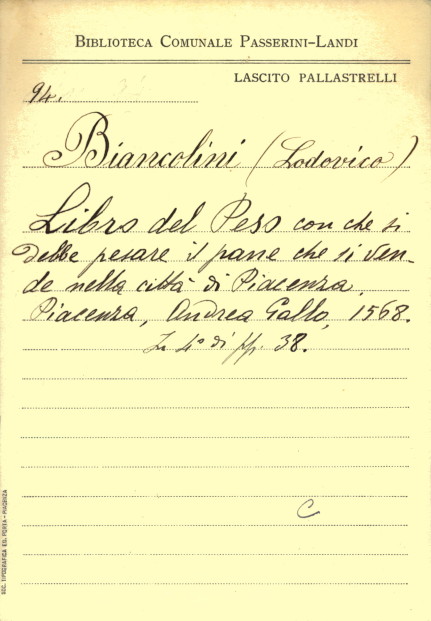 BIBLIOTECA COMUNALE PASSERINI-LANDI
LASCITO PALLASTRELLI
94.
Biancolini (Lodovico)
Libro del Peso con che si
debbe pesare il pane che si ven-
de nella città di Piacenza.
Piacenza, Andrea Gallo, 1568.
In 4° di pp. 38.
C
SOC. TIPOGRAFICA ED. PORTA - PIACENZA